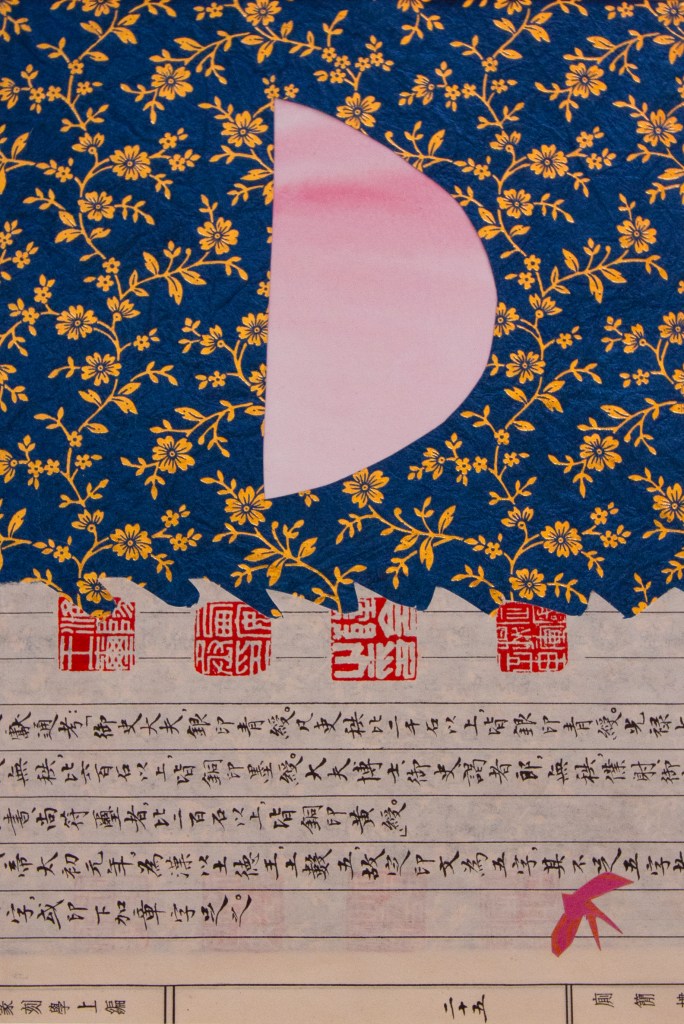 獻通考:「御史大夫,銀印青綬。凡吏秩比二千石以上,皆銀印青綬。光祿
無秩,比六百石以上,皆銅印墨綬。大夫博士、御史謁者、郎,無秩。僕射、御
書尚符璽者,比二百石以上,皆銅印黃綬。」
帝太初元年,為漢以土德王,土數五,故定印文為五字,其不足五字
字,或印下加章字足之。
篆刻學上編
二十五
廁簡